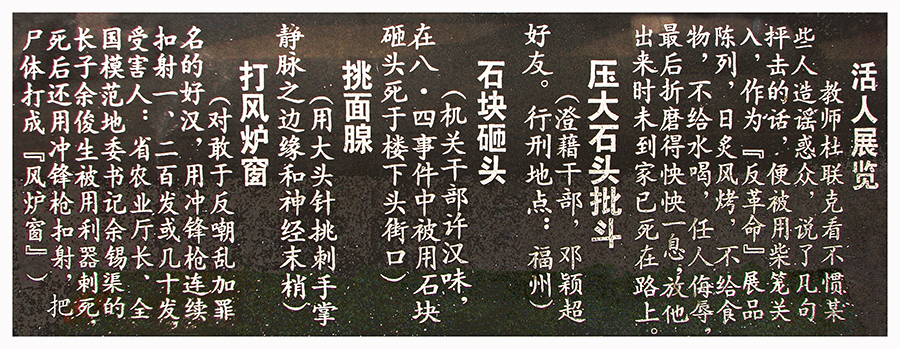 活人展览
教师杜联克看不惯某
些人造谣惑众，说了几句
抨击的话，便被用柴笼关
入，作为『反革命』展品
陈列，日炙风烤，不给食
物，不给水喝，任人侮辱，
最后折磨得怏怏一息，放他
出来时未到家已死在路上。
压大石头批斗
（澄藉干部，邓颖超
好友。行刑地点：福州）
石块砸头
（机关干部许汉味，
在八·四事件中被用石块
砸头死于楼下头街口）
挑面腺
（用大头针挑刺手掌
静脉之边缘和神经末梢）
打风炉窗
（对敢于反嘲乱加罪
名的好汉，用冲锋枪连续
扣射一、二百发或几十发，
受害人：省农业厅长、全
国模范地委书记余锡渠的
长子余俊生被用利器刺死，
死后还用冲锋枪扣射，把
尸体打成『风炉窗』）